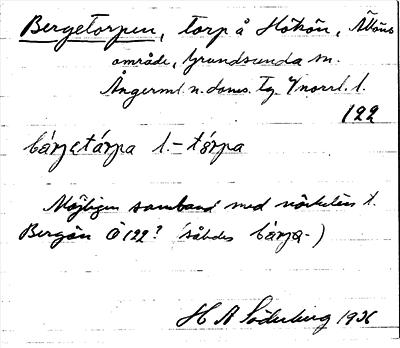 Bergetorpen, torp å Hökön, Älböns
område, Grundsunda sn.
Ångerml. n. doms. Tg. Y norrl. l.
122
bárjatárpa l. -tórpa
Möjligen samband med närheten t.
Bergön Ö 122? (såbdes bárja-)
H A Söderberg 1936